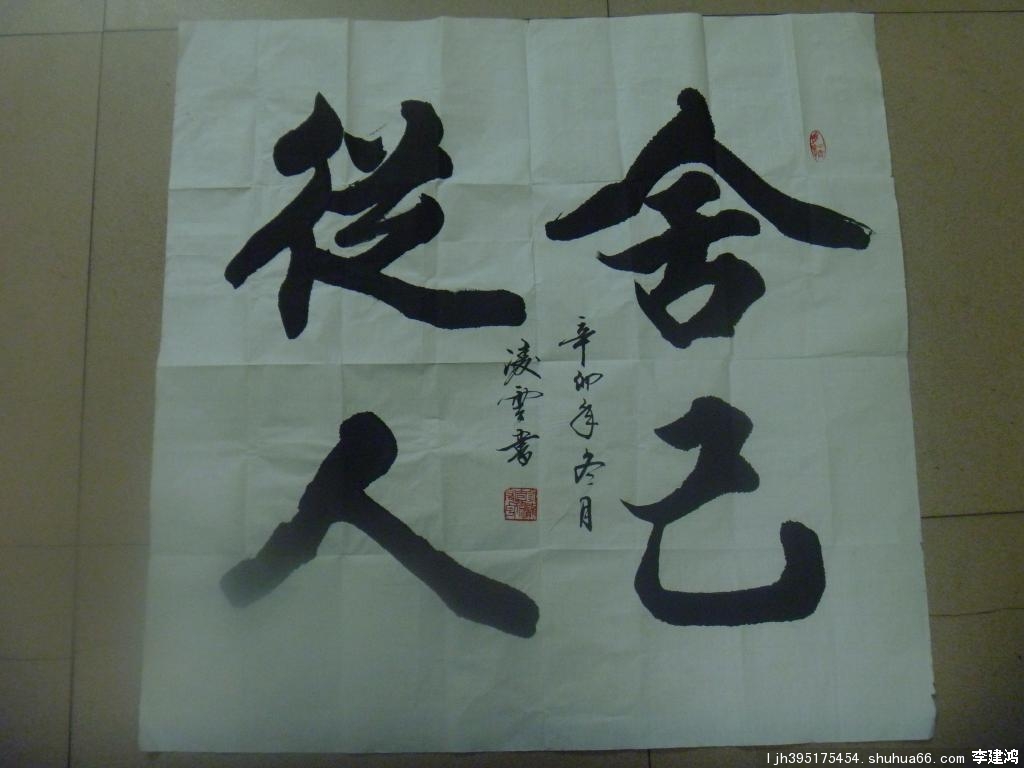 舍己
從人
辛卯年冬月
凌雲書
ljh395175454. shuhua66. com 李建鸿